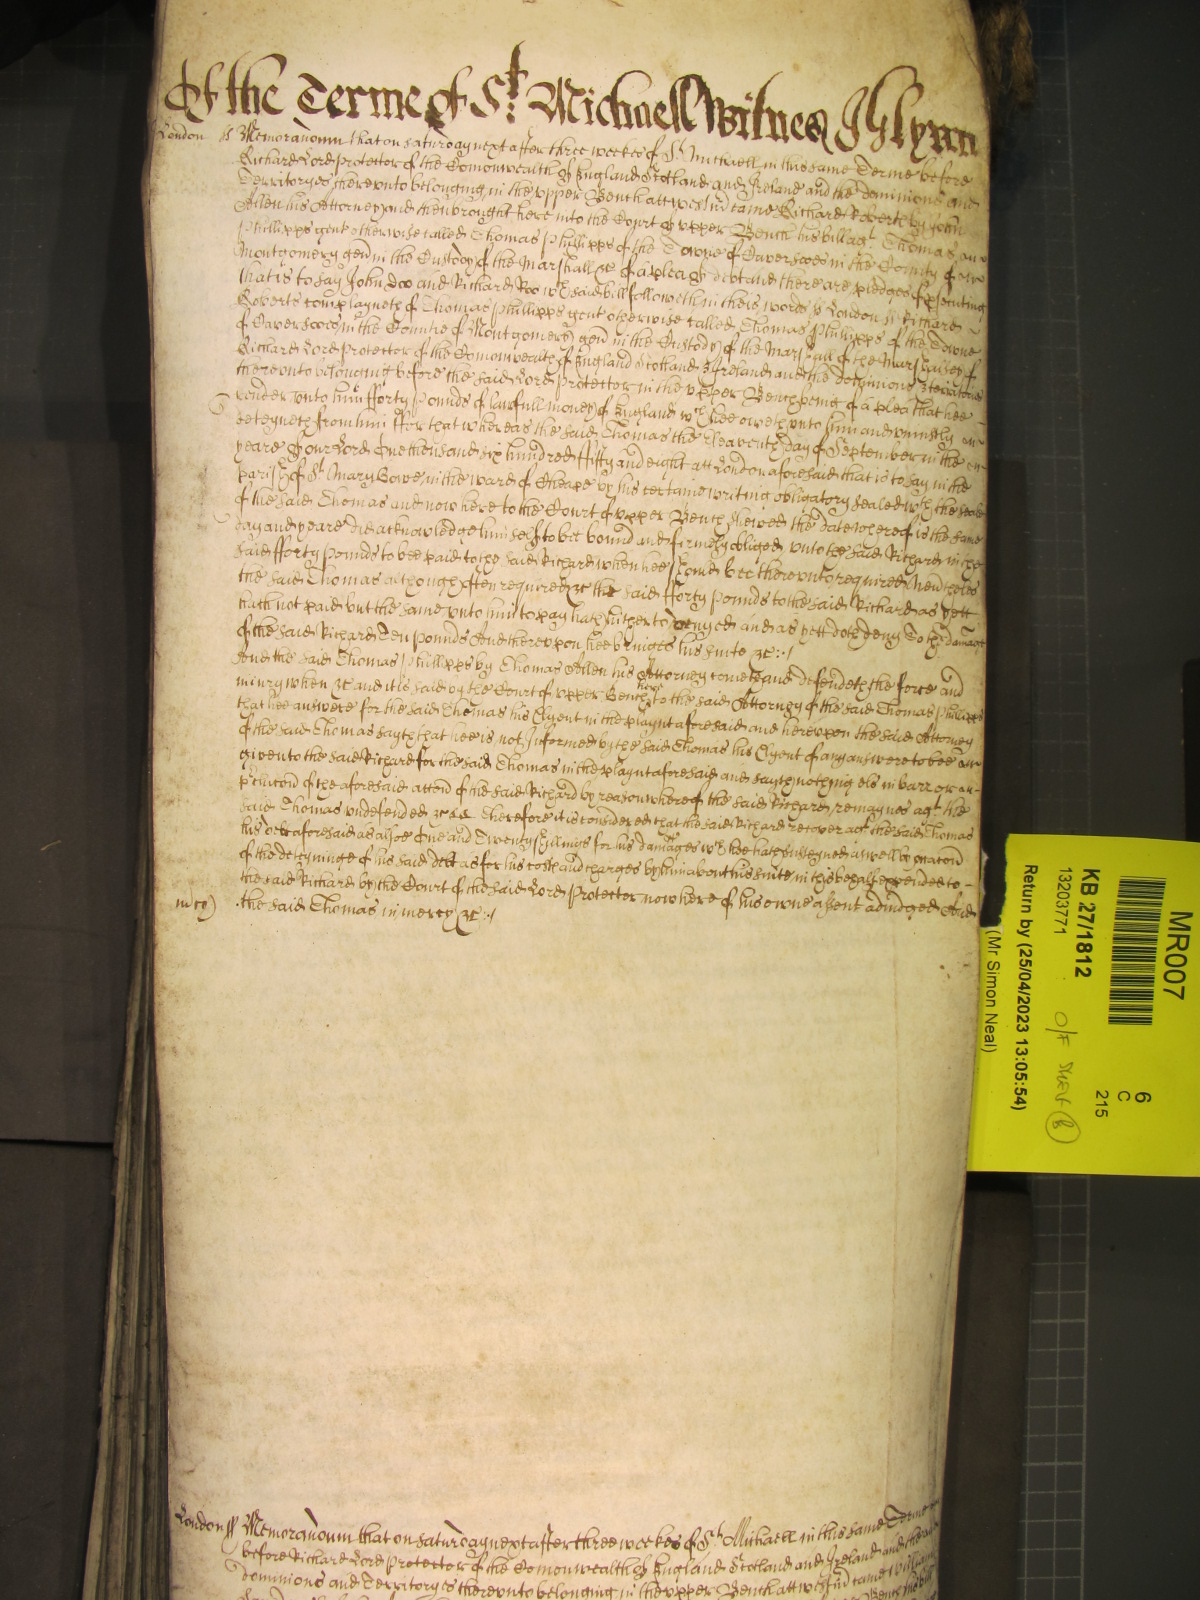 Of the Terme of St. Michaell Witnes Glynn
London ss Memorandum that on Saturday next after three weekes of St. Michaell in this same Terme before
Richard Lord Protector of the Comonwealth of England Scotland and Ireland and the dominions and
Territoryes thereunto belonging in the upper Bench att Westmr came Richard Roberts by John
Allen his Attorney and then brought here into the Court of upper Bench his bill agt Thomas
Phillipps gent otherwise called Thomas Phillipps of the Towne of Caerfoose in the County of
Montgomery gent in the Custody of the Marshall &c of a plea of debt and there are pledges of prosecuting
that is to say John Doo and Richard Roo wch said bill followeth in theis words ss London ss Richard
Roberts complayneth of Thomas Phillipps gent otherwise called Thomas Phillipps of the Towne
of in the Countie of Montgomery gent in the Custody of the Marshall of the Marshalsey of
Richard Lord Protector of the Comonwealth of England Scotland & Ireland and the dominions & territories
thereunto belonging before the said Lord Protector in the upper Bench being of a plea that hee
render unto him fforty Pounds of lawfull money of England wch hee oweth unto him and uniustly
deteyneth from him ffor that whereas the said Thomas the Eleaventh day of September in the
yeare of our Lord One thousand six hundred ffifty and eight att London aforesaid that is to say in the
parish of St. Mary Bowe in the ward of Cheape by his certaine writing obligatory sealed wth the seale
of the said Thomas and now here to the Court of upper Bench shewed the date whereof is the same
day and yeare did acknowledge himselfe to bee bound and firmely obliged unto the said Richard in the
said fforty pounds to bee paid to the said Richard when hee should bee thereunto required Nevertheles
the said Thomas although often required &c the said fforty pounds to the said Richard as yett
hath not paid but the same unto him to pay hath hitherto denyed and as yett doth deny To the damage
of the said Richard Ten pounds And thereupon hee bringes his suite &c
And the said Thomas Phillipps by Thomas Allen his Attorney cometh and defendeth the force and
iniury when &c and it is said by the Court of upper Bench here to the said Attorney of the said Thomas Phillipps
that hee answere for the said Thomas his Clyent in the playnt aforesaid and hereupon the said Attorney
of the said Thomas sayth that hee is not Informed by the said Thomas his Clyent of any answere to bee
given to the said Richard for the said Thomas in the playnt aforesaid and sayth nothing els in barr or
of the aforesaid accon of the said Richard by reason whereof the said Richard remaynes agt the
said Thomas undefended &c Therefore it is considered that the said Richard recover agt the said Thomas
his debt aforesaid as alsoe One and Twenty shillings for his damages wch hee hath susteyned aswell by reason
of the deteyninge of his said debt as for his costs and charges by him about his suite in this behalfe expended to
the said Richard by the Court of the said Lord Protector now here of his owne assent adiudged And
the said Thomas in mercy &c
London ss Memorandum that on Saturday next after three weekes of St. Michaell in this same Terme
before Richard Lord Protector of the Comonwealth of England Scotland and Ireland and the
dominions and Territoryes thereunto belonging in the upper Bench att Westmr came William
MR007
KB 27/1812
13203771
6
C
215
Return by (25/04/2023 13:05:54)
(Mr Simon Neal)